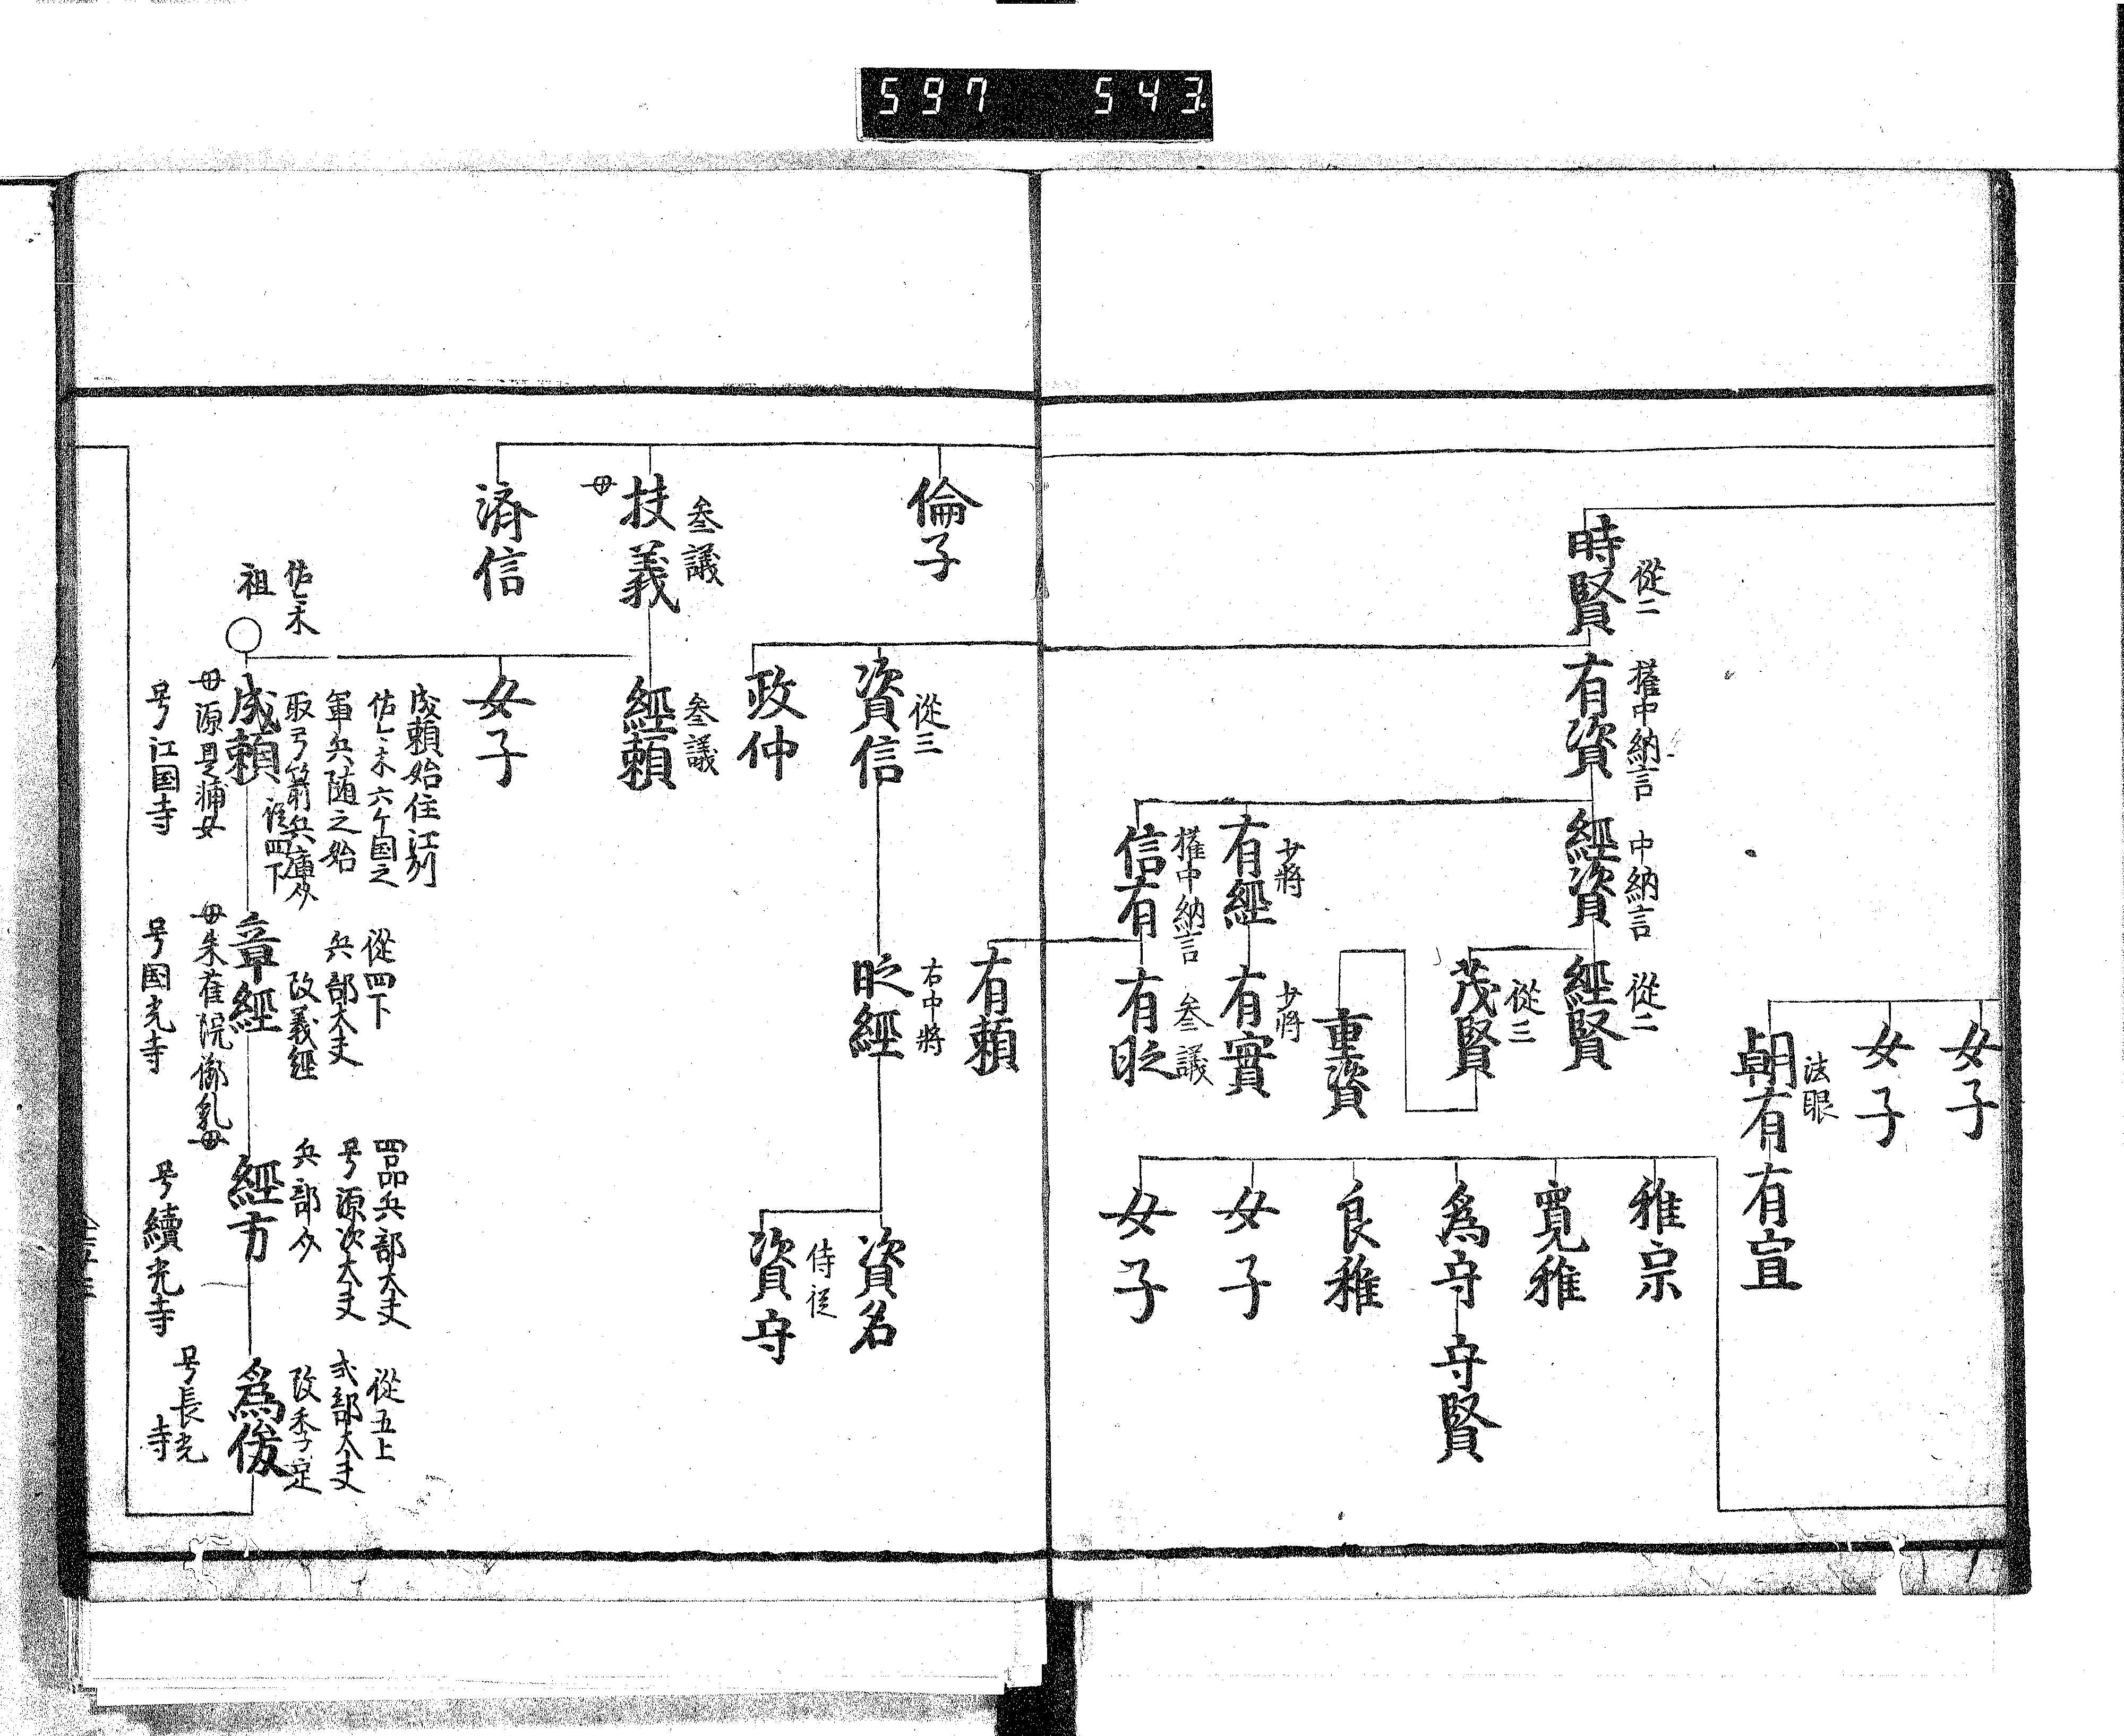 597 543.
女子
女子
法眼
朝有
有宣
從二
時賢
權中納言
有資
中納言
經資
從二
經賢
從三
茂賢
重資
少將
有經
少將
有實
權中納言
信有
參議
有昭
有頼
雅宗
寛雅
爲守
守賢
良雅
女子
女子
從三
資信
右中將
昭經
資名
侍從
資守
政仲
倫子
參議
扶義
母
參議
經頼
女子
濟信
佐々木
祖
成頼始住江刕
佐々木六ケ国之
軍兵随之始
取弓箭兵庫
從四下
成頼
母源是輔女
号江国寺
從四下
兵部大夫
改義經
章經
母朱雀院御乳母
号国光寺
四品兵部大夫
号源次大夫
兵部
經方
号續光寺
從五上
式部大夫
改季定
爲俊
号長光
寺